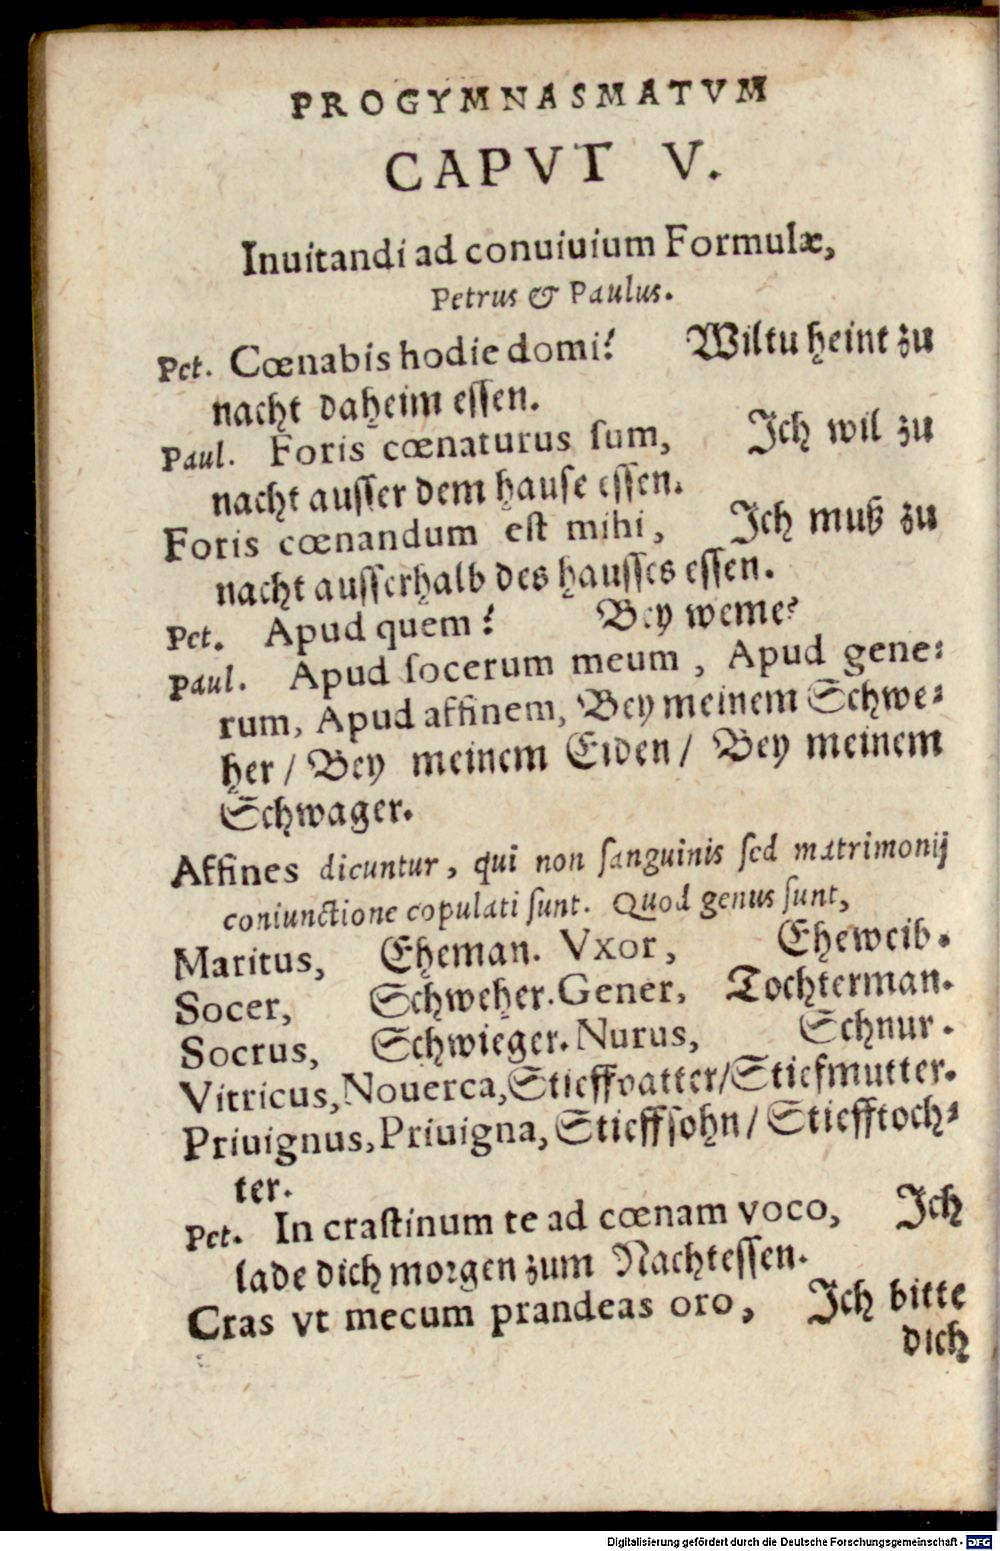 PROGYMNASMATVM
CAPVT V.
Inuitandi ad conuiuium Formulæ,
Petrus & Paulus.
Pet. Cœnabis hodie domi? Wiltu heint zu
nacht daheim essen.
Paul. Foris cœnaturus sum, Ich wil zu
nacht ausser dem hause essen.
Foris cœnandum est mihi, Ich muß zu
nacht ausserhalb des hausses essen.
Pet. Apud quem? Bey weme?
Paul. Apud socerum meum, Apud gene-
rum, Apud affinem, Bey meinem Schwe-
her / Bey meinem Eiden / Bey meinem
Schwager.
Affines dicuntur, qui non sanguinis sed matrimonij
coniunctione copulati sunt. Quod genus sunt,
Maritus, Eheman. Vxor, Eheweib.
Socer, Schweher. Gener, Tochterman.
Socrus, Schwieger. Nurus, Schnur.
Vitricus, Nouerca, Stieffvatter / Stiefmutter.
Priuignus, Priuigna, Stieffsohn / Stiefftoch-
ter.
Pet. In crastinum te ad cœnam voco, Ich
lade dich morgen zum Nachtessen.
Cras vt mecum prandeas oro, Ich bitte
dich
Digitalisierung gefördert durch die Deutsche Forschungsgemeinschaft - DFG